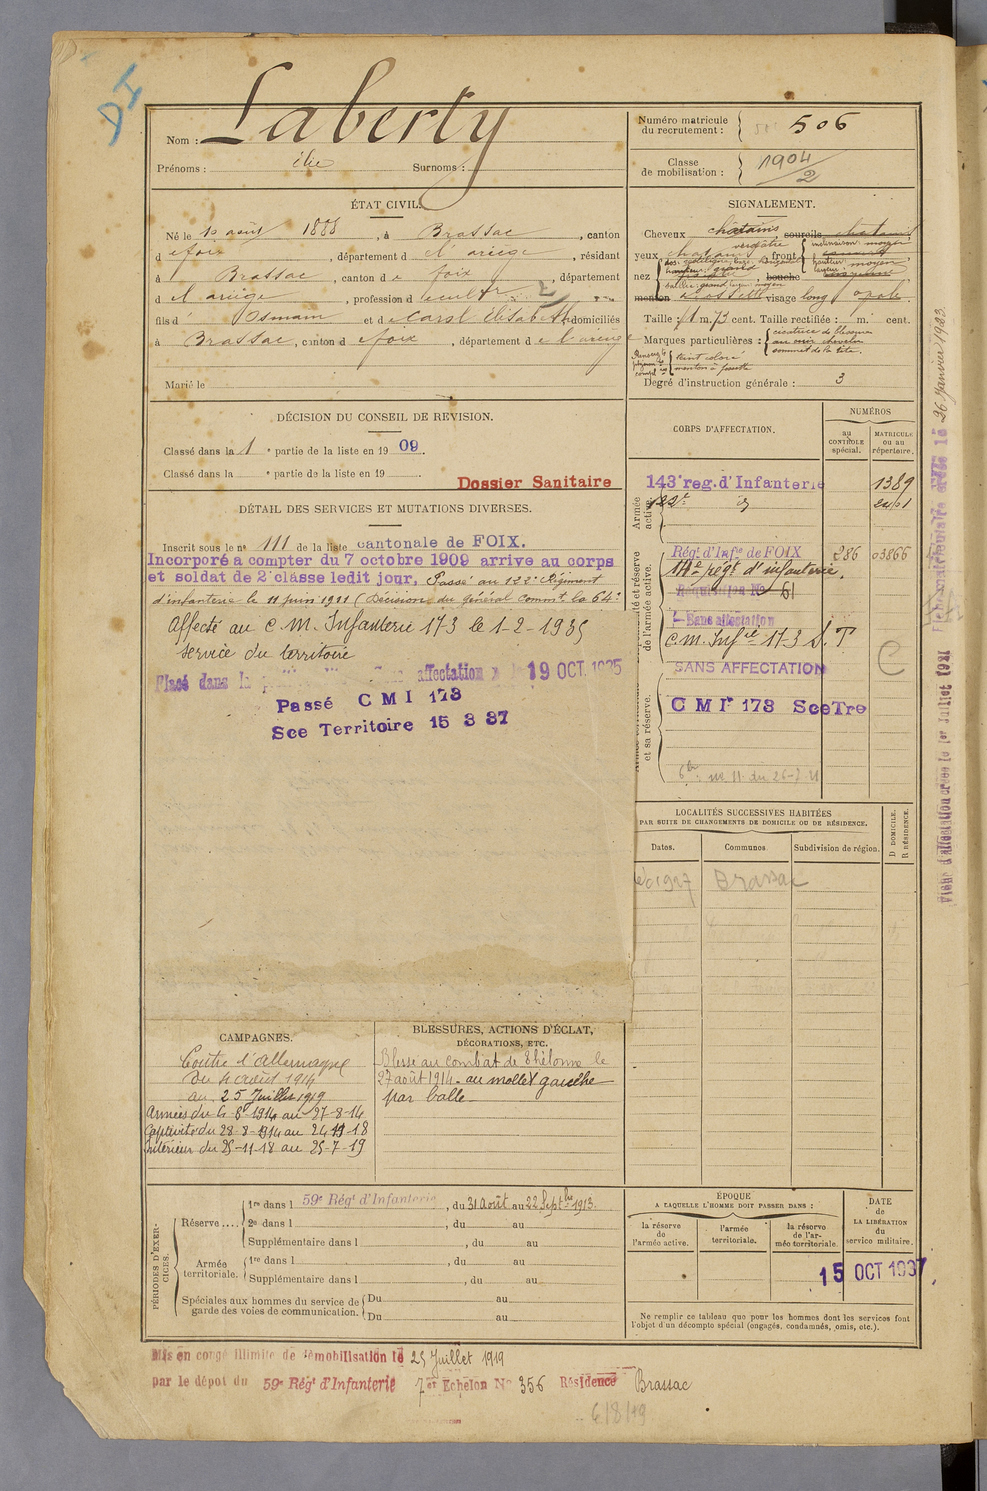 DI
Nom : Laberty
Prénoms : élie Surnoms :
Numéro matricule du recrutement : 506
Classe de mobilisation : 1904/2
ÉTAT CIVIL.
Né le 10 août 1888, à Brassac, canton
d e foix, département d e l'ariège, résidant
à Brassac, canton d e foix, département
d e l'ariège, profession d
fils d' Osmain et d e Carol Élisabeth domiciliés
à Brassac, canton d e foix, département d e l'ariège
Marié le
SIGNALEMENT.
Cheveux châtains, sourcils châtains
yeux verdâtre, front
nez bouche
menton visage long ovale
Taille : 1 m. 73 cent. Taille rectifiée : m. cent.
Marques particulières : cicatrice de
au cuir chevelu
sommet de la tête.
teint coloré
menton à fossette
Degré d'instruction générale : 3
DÉCISION DU CONSEIL DE REVISION.
Classé dans la 1 e partie de la liste en 1909.
Classé dans la e partie de la liste en 19
Dossier Sanitaire
DÉTAIL DES SERVICES ET MUTATIONS DIVERSES.
Inscrit sous le n° 111 de la liste cantonale de FOIX.
Incorporé à compter du 7 octobre 1909 arrive au corps
et soldat de 2e classe ledit jour, Passé au 122e Régiment
d'infanterie le 11 juin 1911 (Décision du général Commt la 64e
Affecté au C.M. Infanterie 173 le 1-2-1935
Service du territoire
Placé dans la affectation 19 OCT. 1935
Passé C M I 173
Sce Territoire 15 3 37
CORPS D'AFFECTATION.
NUMÉROS
au CONTRÔLE spécial.
MATRICULE ou au répertoire.
Armée active.
143e reg. d'Infanterie 1389
122e d° 2401
et réserve de l'armée active.
Régt d'Infie de FOIX 286 03866
régt d'infanterie.
Réquisition N° 61
Sans affectation
C.M. Infie 173 S.T
SANS AFFECTATION
C M I 173 Sce Tre
et sa réserve.
C
LOCALITÉS SUCCESSIVES HABITÉES
PAR SUITE DE CHANGEMENTS DE DOMICILE OU DE RÉSIDENCE.
Dates. Communes. Subdivision de région. D DOMICILE. R RÉSIDENCE.
1927 Brassac
CAMPAGNES.
Contre l'Allemagne
du 4 août 1914
au 25 Juillet 1919
Armées du 4-8-1914 au 27-8-14
Captivité du 28-8-1914 au 24-11-18
Intérieur du 25-11-18 au 25-7-19
BLESSURES, ACTIONS D'ÉCLAT,
DÉCORATIONS, ETC.
Blessé au combat de Thélonne le
27 août 1914 - au mollet gauche
par balle
PÉRIODES D'EXERCICES.
Réserve.... 1re dans l 59e Régt d'Infanterie, du 31 Août au 22 Septbre 1913.
2e dans l , du au
Supplémentaire dans l , du au
Armée territoriale. 1re dans l , du au
Supplémentaire dans l , du au
Spéciales aux hommes du service de garde des voies de communication. Du au
Du au
ÉPOQUE
A LAQUELLE L'HOMME DOIT PASSER DANS :
la réserve de l'armée active.
l'armée territoriale.
la réserve de l'armée territoriale.
DATE DE LA LIBÉRATION du service militaire.
15 OCT 1937
Ne remplir ce tableau que pour les hommes dont les services font
l'objet d'un décompte spécial (engagés, condamnés, omis, etc.).
Mis en congé illimité de démobilisation le 25 Juillet 1919
par le dépôt du 59e Régt d'Infanterie 7er Echelon N° 356 Résidence Brassac
6/8/19
Fiche matriculaire créée le 26 Janvier 1933.
Fiche d'affectation créée le 1er Juillet 1931